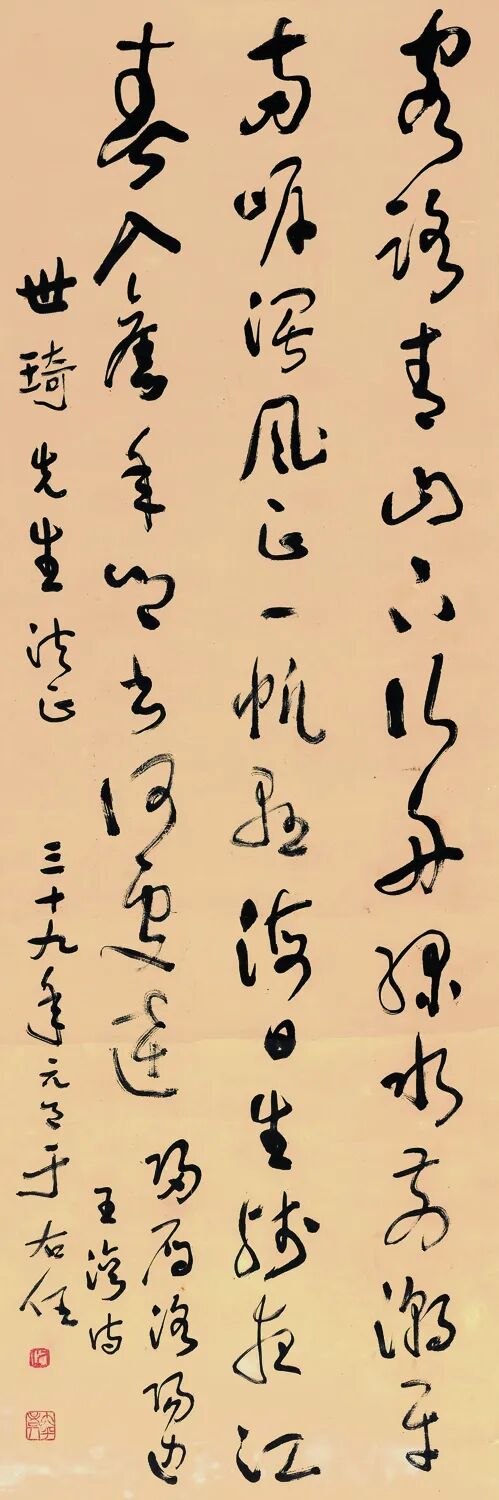 客路青山下行舟綠水前潮平
兩岸濶風正一帆懸海日生殘夜江
春入舊年鄉書何處達歸雁洛陽邊
王灣詩
世琦先生法正
三十九年元旦于右任